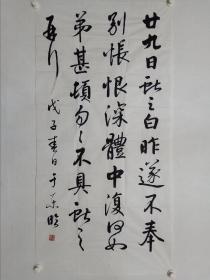 廿九日献之白昨遂不奉
别怅恨深體中復何如
弟甚頓匆匆不具献之
再行
戊子春日于